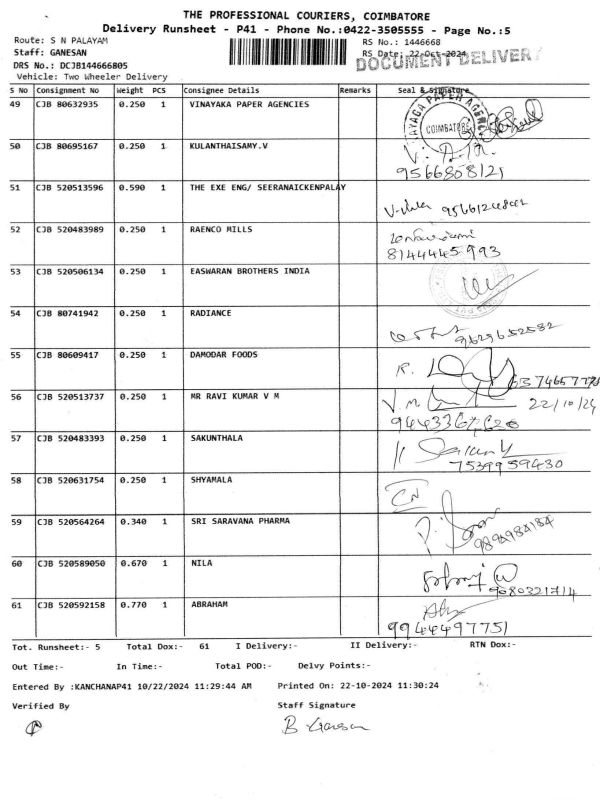 THE PROFESSIONAL COURIERS, COIMBATORE
Delivery Runsheet - P41 - Phone No.:0422-3505555 - Page No.:5
Route: S N PALAYAM
RS No.: 1446668
Staff: GANESAN
RS Date: 22-Oct-2024
DOCUMENT DELIVERY
DRS No.: DCJB144666805
Vehicle: Two Wheeler Delivery
S No Consignment No Weight PCS Consignee Details Remarks Seal & Signature
49 CJB 80632935 0.250 1 VINAYAKA PAPER AGENCIES
COIMBATORE
50 CJB 80695167 0.250 1 KULANTHAISAMY.V
9566808121
51 CJB 520513596 0.590 1 THE EXE ENG/ SEERANAICKENPALAY
52 CJB 520483989 0.250 1 RAENCO MILLS
8144445993
53 CJB 520506134 0.250 1 EASWARAN BROTHERS INDIA
54 CJB 80741942 0.250 1 RADIANCE
9629652582
55 CJB 80609417 0.250 1 DAMODAR FOODS
56 CJB 520513737 0.250 1 MR RAVI KUMAR V M
V.M. 22/10/24
57 CJB 520483393 0.250 1 SAKUNTHALA
7539959430
58 CJB 520631754 0.250 1 SHYAMALA
59 CJB 520564264 0.340 1 SRI SARAVANA PHARMA
9894984184
60 CJB 520589050 0.670 1 NILA
61 CJB 520592158 0.770 1 ABRAHAM
9944497751
Tot. Runsheet:- 5 Total Dox:- 61 I Delivery:- II Delivery:- RTN Dox:-
Out Time:- In Time:- Total POD:- Delvy Points:-
Entered By :KANCHANAP41 10/22/2024 11:29:44 AM Printed On: 22-10-2024 11:30:24
Verified By Staff Signature
B. Ganesan